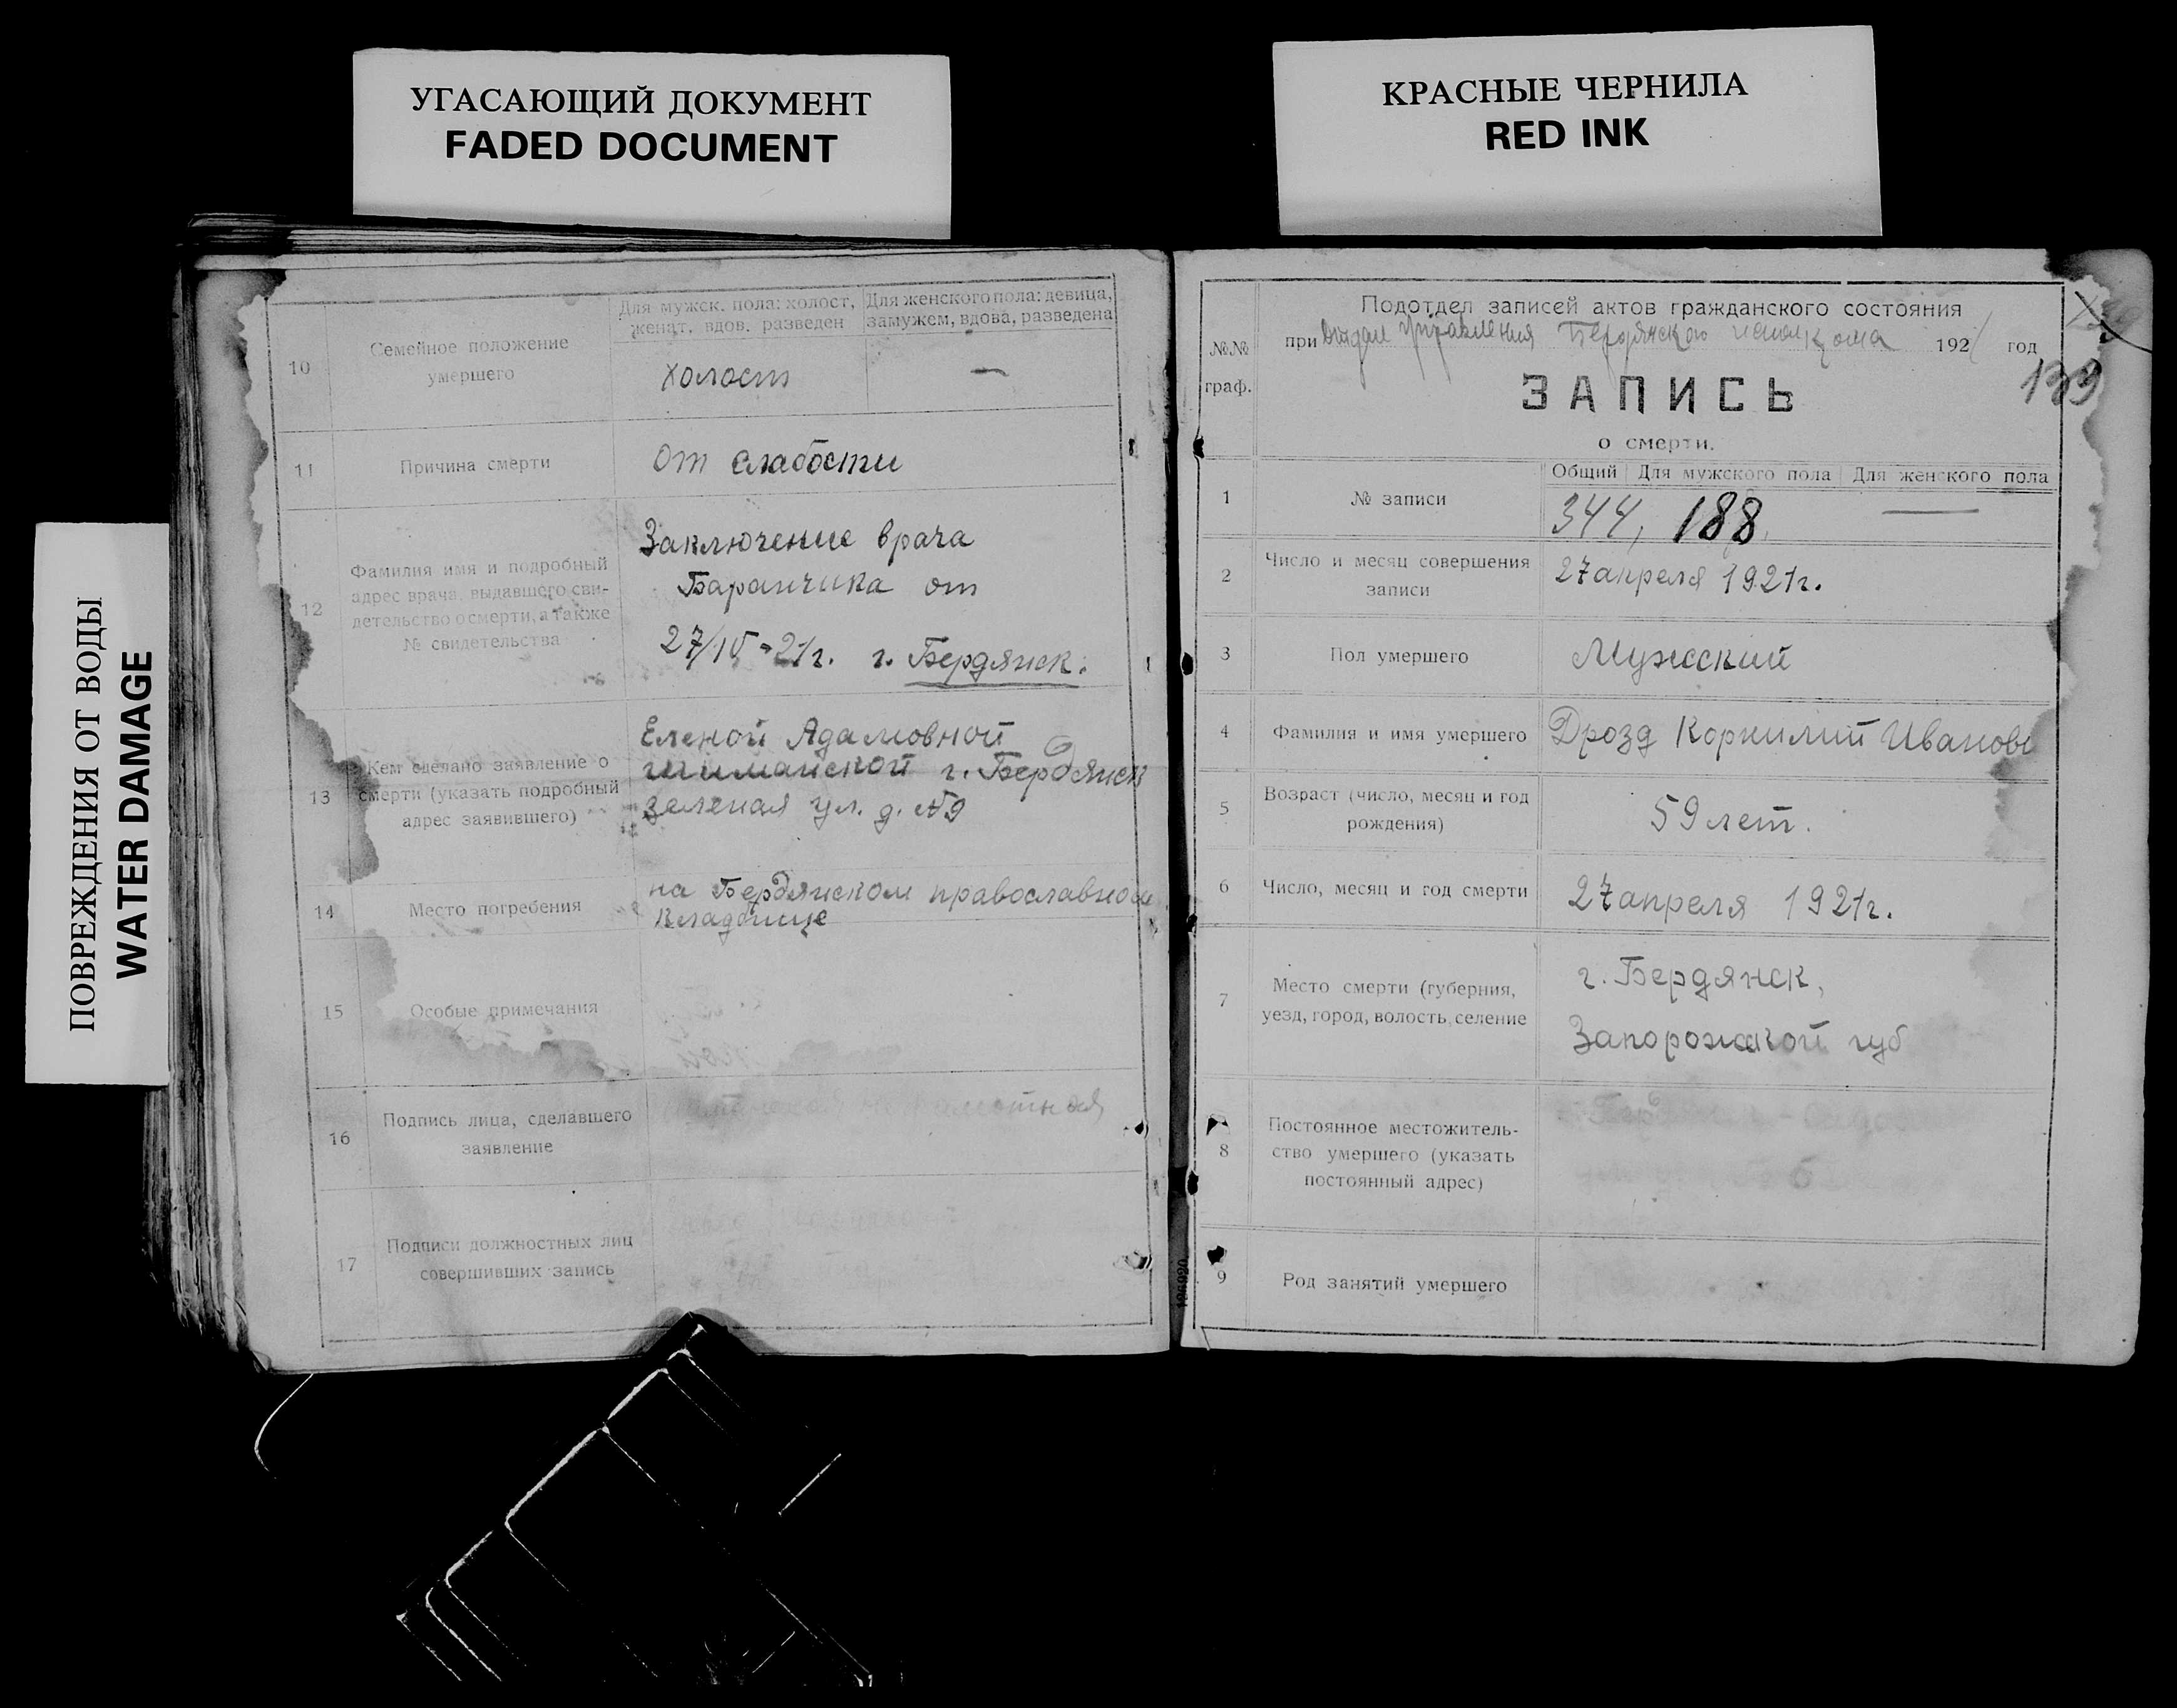 УГАСАЮЩИЙ ДОКУМЕНТ
FADED DOCUMENT
КРАСНЫЕ ЧЕРНИЛА
RED INK
ПОВРЕЖДЕНИЯ ОТ ВОДЫ
WATER DAMAGE
10
Семейное положение
умершего
Для мужск. пола: холост,
женат. вдов. разведен
Для женского пола: девица,
замужем, вдова, разведена
холост
—
11
Причина смерти
от слабости
12
Фамилия имя и подробный
адрес врача, выдавшего сви-
детельство о смерти, а также
№ свидетельства
Заключение врача
Баранчика от
27/IV-21г. г. Бердянск.
13
Кем сделано заявление о
смерти (указать подробный
адрес заявившего)
Еленой Адамовной
г. Бердянск
Зеленая ул. д. №9
14
Место погребения
на Бердянском православном
кладбище
15
Особые примечания
16
Подпись лица, сделавшего
заявление
17
Подписи должностных лиц
совершивших запись
Подотдел записей актов гражданского состояния
№№
граф.
при Отделе Управления Бердянского исполкома 1921 год
139
ЗАПИСЬ
о смерти.
1
№ записи
Общий Для мужского пола Для женского пола
344, 188. —
2
Число и месяц совершения
записи
27 апреля 1921г.
3
Пол умершего
Мужский
4
Фамилия и имя умершего
Дрозд Корнилий Иванов
5
Возраст (число, месяц и год
рождения)
59 лет.
6
Число, месяц и год смерти
27 апреля 1921г.
7
Место смерти (губерния,
уезд, город, волость, селение
г. Бердянск,
Запорожской губ
8
Постоянное местожитель-
ство умершего (указать
постоянный адрес)
9
Род занятий умершего
186920